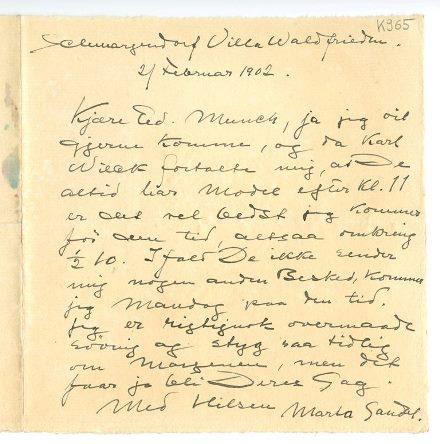 K965
Schmargendorf Villa Waldfrieden.
2/ Februar 1902.
Kjære Ed. Munch, ja jeg vil
gjerne komme, og da Karl
fortalte mig, at De
altid har Model efter Kl. 11
er det vel bedst jeg kommer
før den tid, altsaa omkring
½ 10. Ifald De ikke sender
mig nogen anden Besked, kommer
jeg Mandag paa den tid.
Jeg er rigtignok overmaade
søvnig og styg saa tidlig
om Morgenen, men det
faar jo bli Deres Sag.
Med Hilsen Marta Sandal.